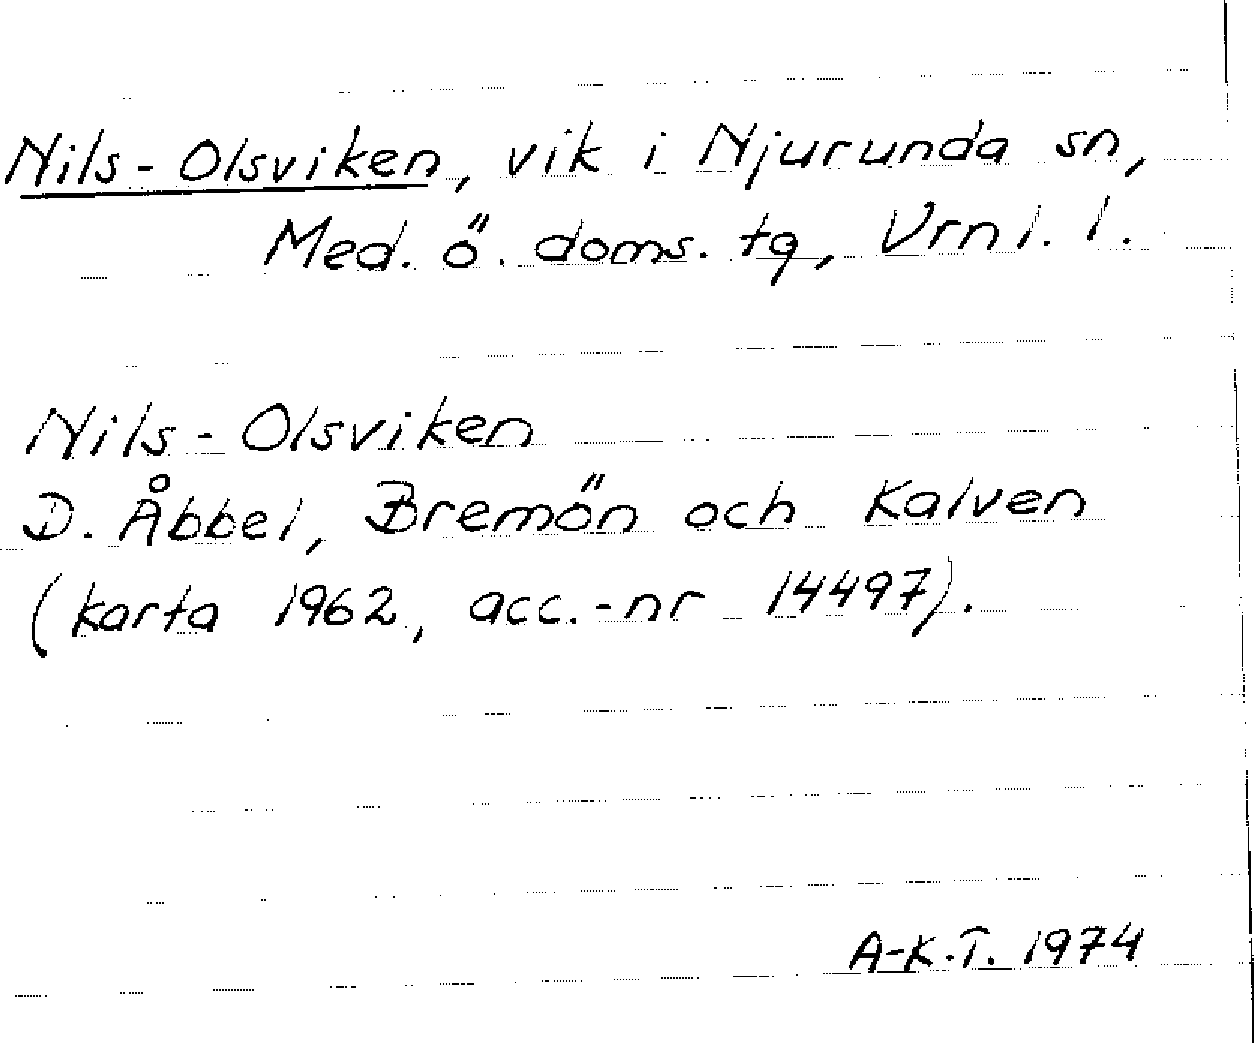 Nils-Olsviken, vik i Njurunda sn,
Med. ö. doms. tg, Vrnl. l.
Nils-Olsviken
D. Åbbel, Bremön och Kalven
(karta 1962, acc.-nr 14497).
A-K.T. 1974